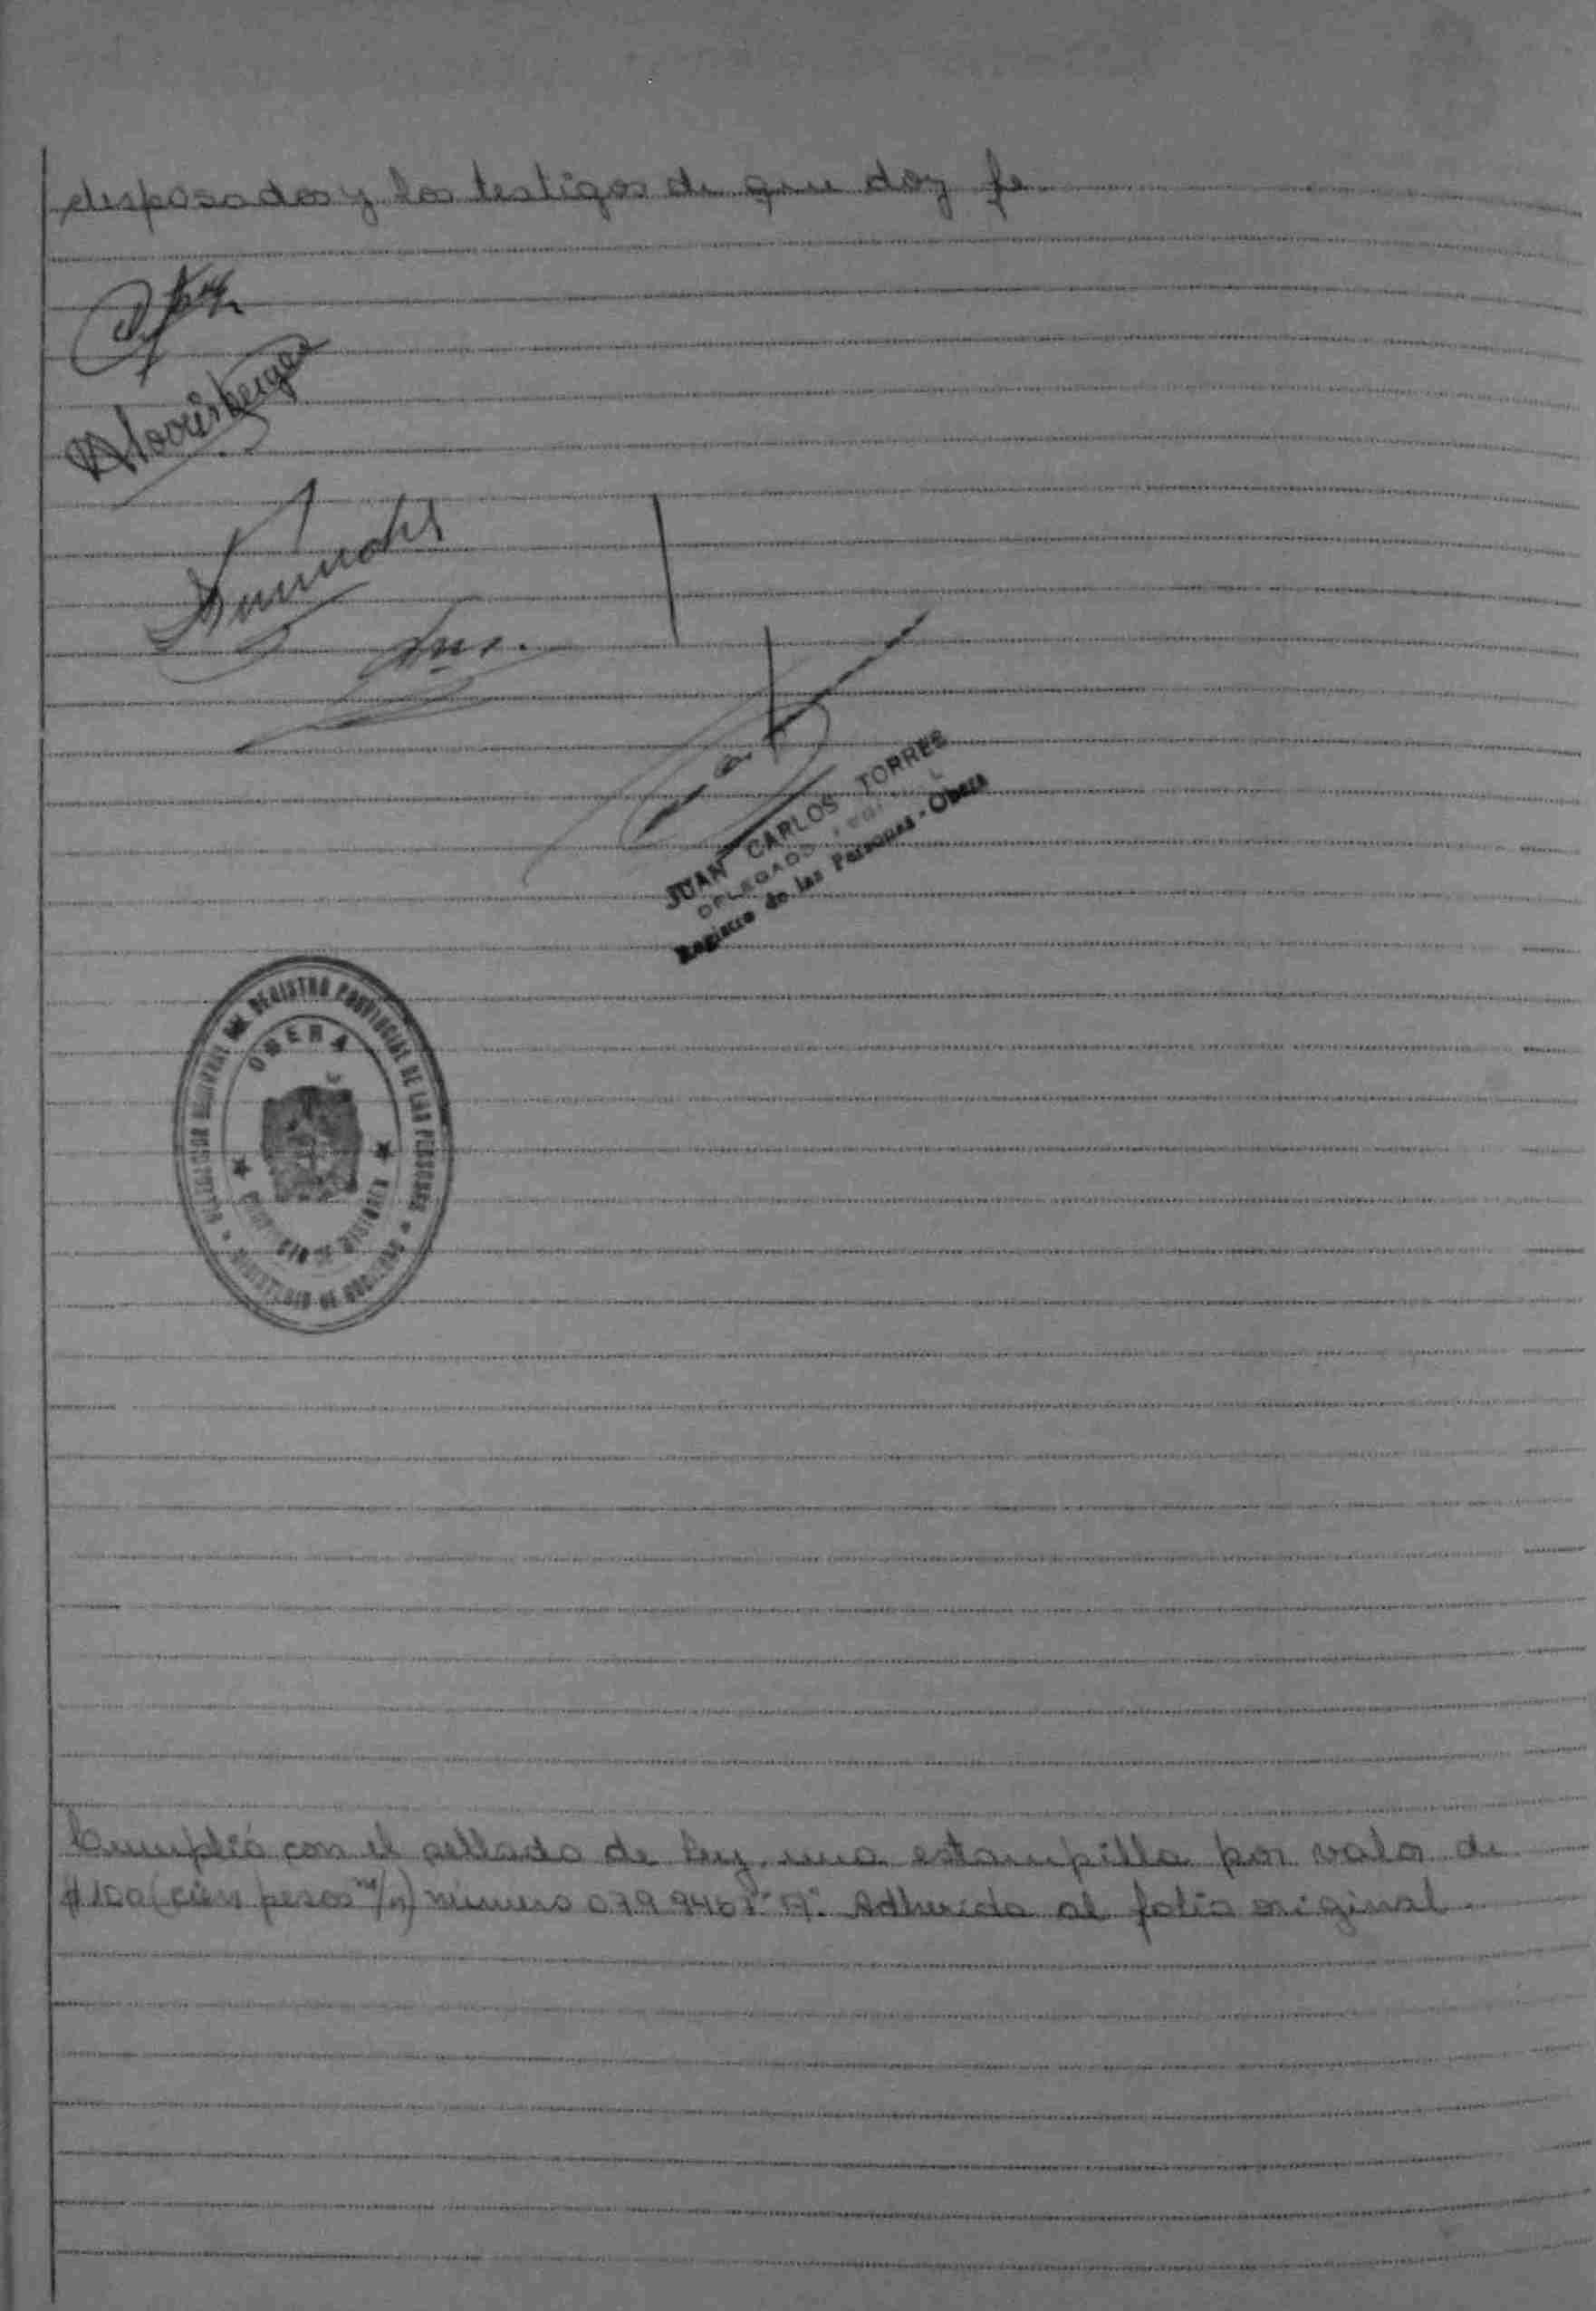 disposados y los testigos de que doy fe
JUAN CARLOS TORRES
DELEGADO
Registro de las Personas - Obera
DIRECCION GENERAL DE REGISTRO PROVINCIAL DE LAS PERSONAS
OBERA
PROVINCIA DE MISIONES
MINISTERIO DE GOBIERNO
Cumplió con el sellado de ley, una estampilla por valor de
$ 100 (cien pesos m/n) número "A". Adherida al folio original.